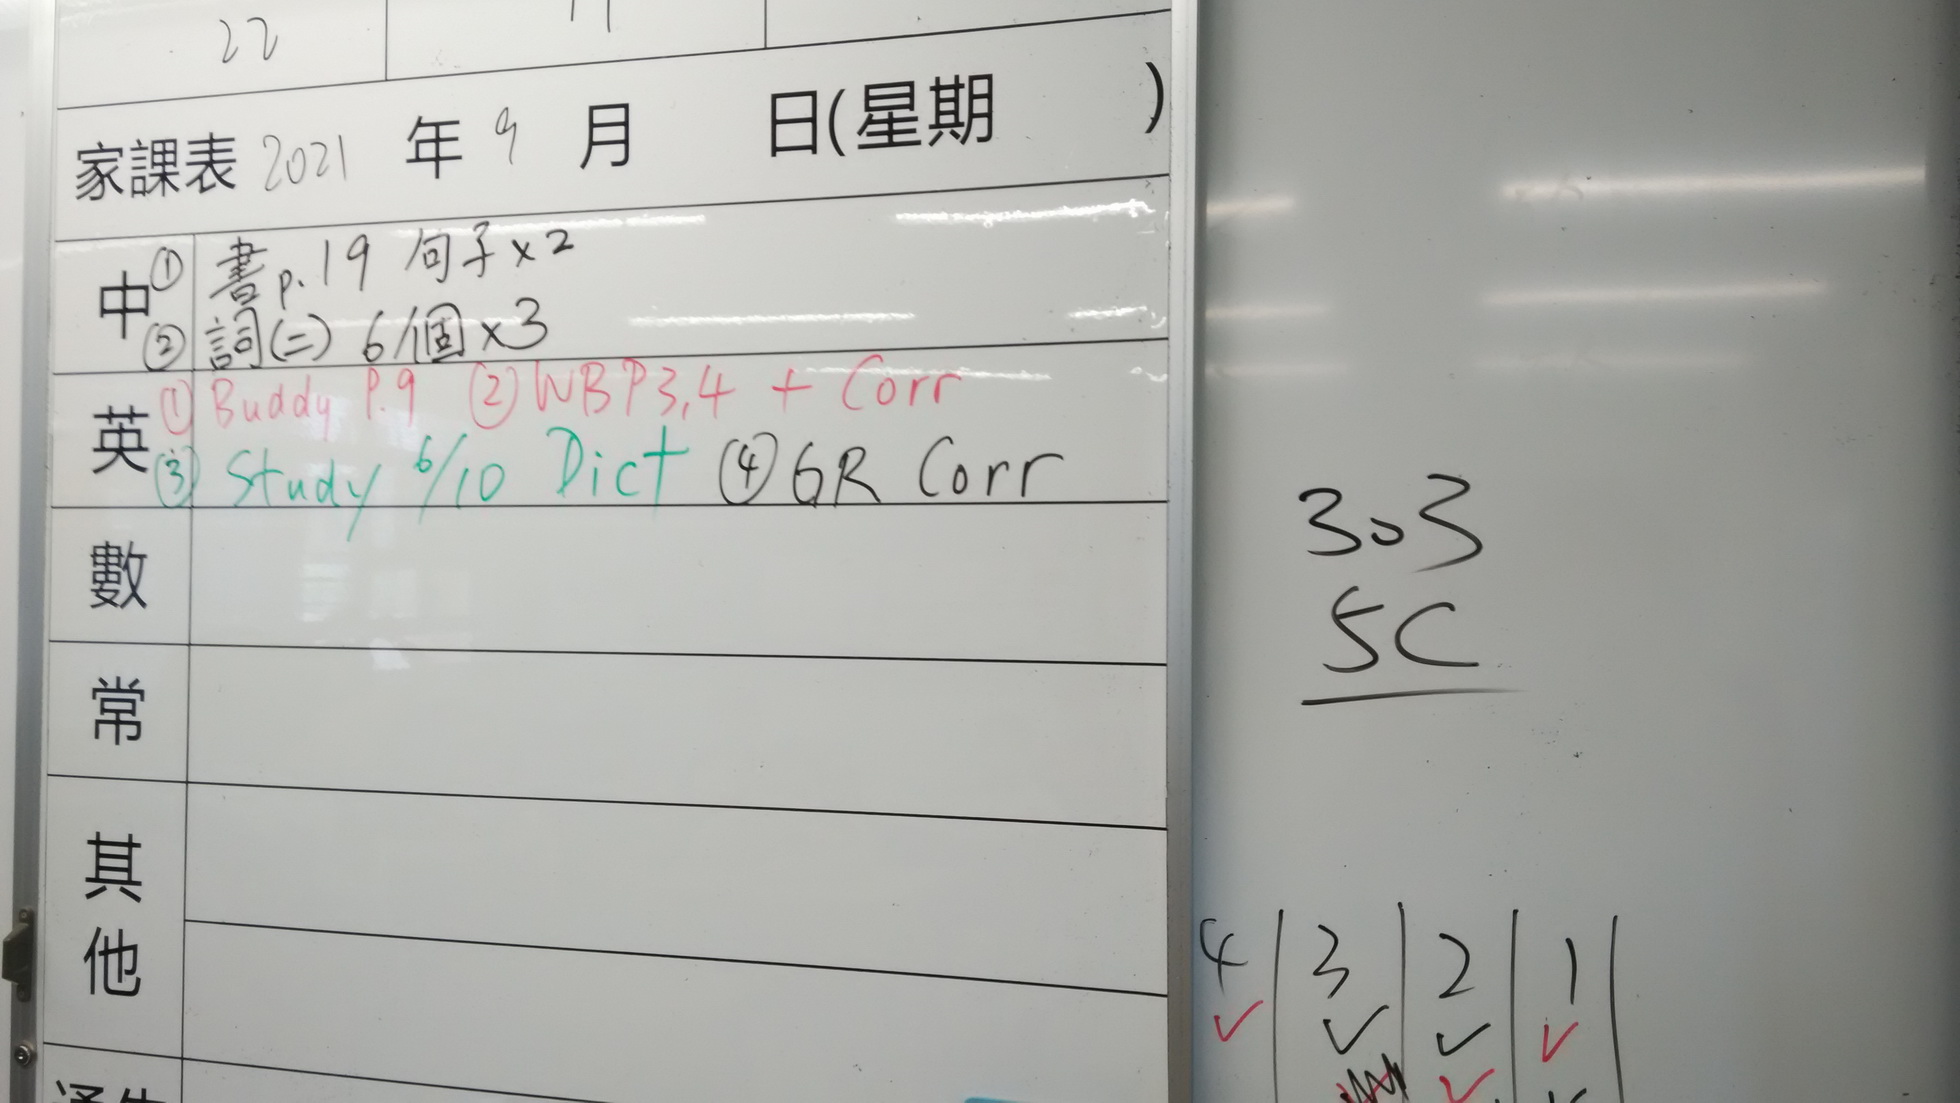 22
家課表 2021 年 9 月 日(星期 )
中 ① 書p.19 句子×2
② 詞(二) 6個×3
英 ① Buddy P.9 ② WB P3,4 + Corr
③ Study 6/10 Dict ④ GR Corr
數
常
其他
303
5C
4 3 2 1
✓ ✓ ✓ ✓